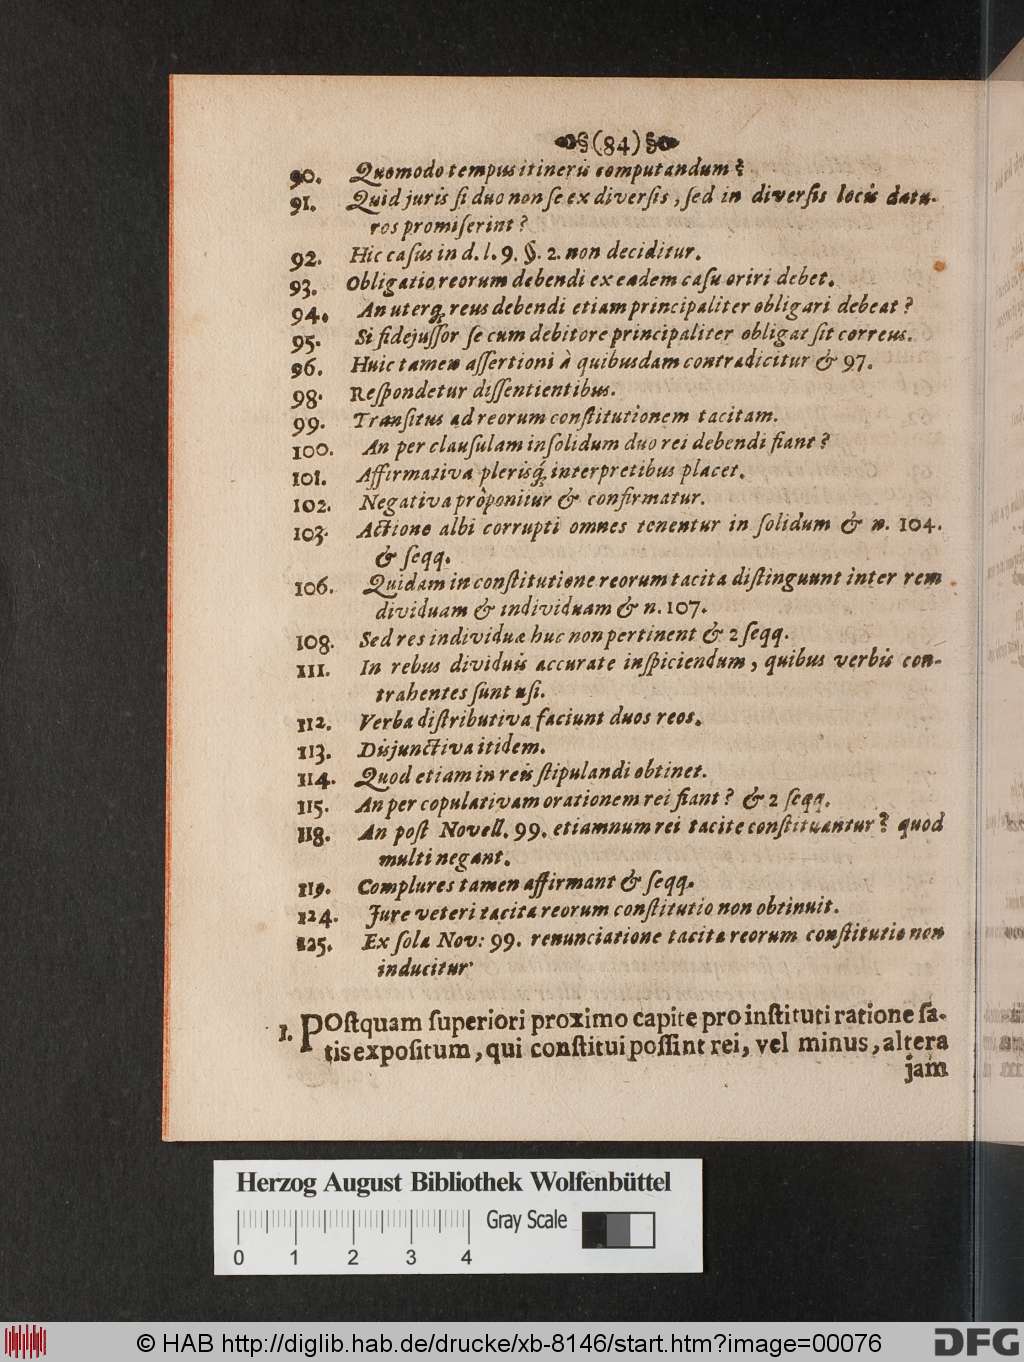 §(84)§
90. Quomodo tempus itineris computandum?
91. Quid juris ſi duo non ſe ex diverſis, ſed in diverſis locis datu-
ros promiſerint?
92. Hic caſus in d. l. 9. §. 2. non deciditur.
93. Obligatio reorum debendi ex eadem caſu oriri debet.
94. An uterq; reus debendi etiam principaliter obligari debeat?
95. Si fidejuſſor ſe cum debitore principaliter obligat ſit correus.
96. Huic tamen aſſertioni à quibusdam contradicitur & 97.
98. Reſpondetur diſſentientibus.
99. Tranſitus ad reorum conſtitutionem tacitam.
100. An per clauſulam inſolidum duo rei debendi fiant?
101. Affirmativa plerisq́; interpretibus placet.
102. Negativa pròponitur & confirmatur.
103. Actione albi corrupti omnes tenentur in ſolidum & n. 104.
& ſeqq.
106. Quidam in conſtitutione reorum tacita diſtinguunt inter rem
dividuam & individuam & n. 107.
108. Sed res individuæ huc non pertinent & 2 ſeqq.
111. In rebus dividuis accurate inſpiciendum, quibus verbis con-
trahentes ſunt uſi.
112. Verba diſtributiva faciunt duos reos.
113. Disjunctiva itidem.
114. Quod etiam in reis ſtipulandi obtinet.
115. An per copulativam orationem rei fiant? & 2 ſeqq.
118. An poſt Novell. 99. etiamnum rei tacite conſtituantur? quod
multi negant.
119. Complures tamen affirmant & ſeqq.
124. Jure veteri tacita reorum conſtitutio non obtinuit.
125. Ex ſola Nov: 99. renunciatione tacita reorum conſtitutio non
inducitur
1. POſtquam ſuperiori proximo capite pro inſtituti ratione ſa-
tis expoſitum, qui conſtitui poſſint rei, vel minus, altera
jam
Herzog August Bibliothek Wolfenbüttel
Gray Scale
0 1 2 3 4
© HAB http://diglib.hab.de/drucke/xb-8146/start.htm?image=00076
DFG